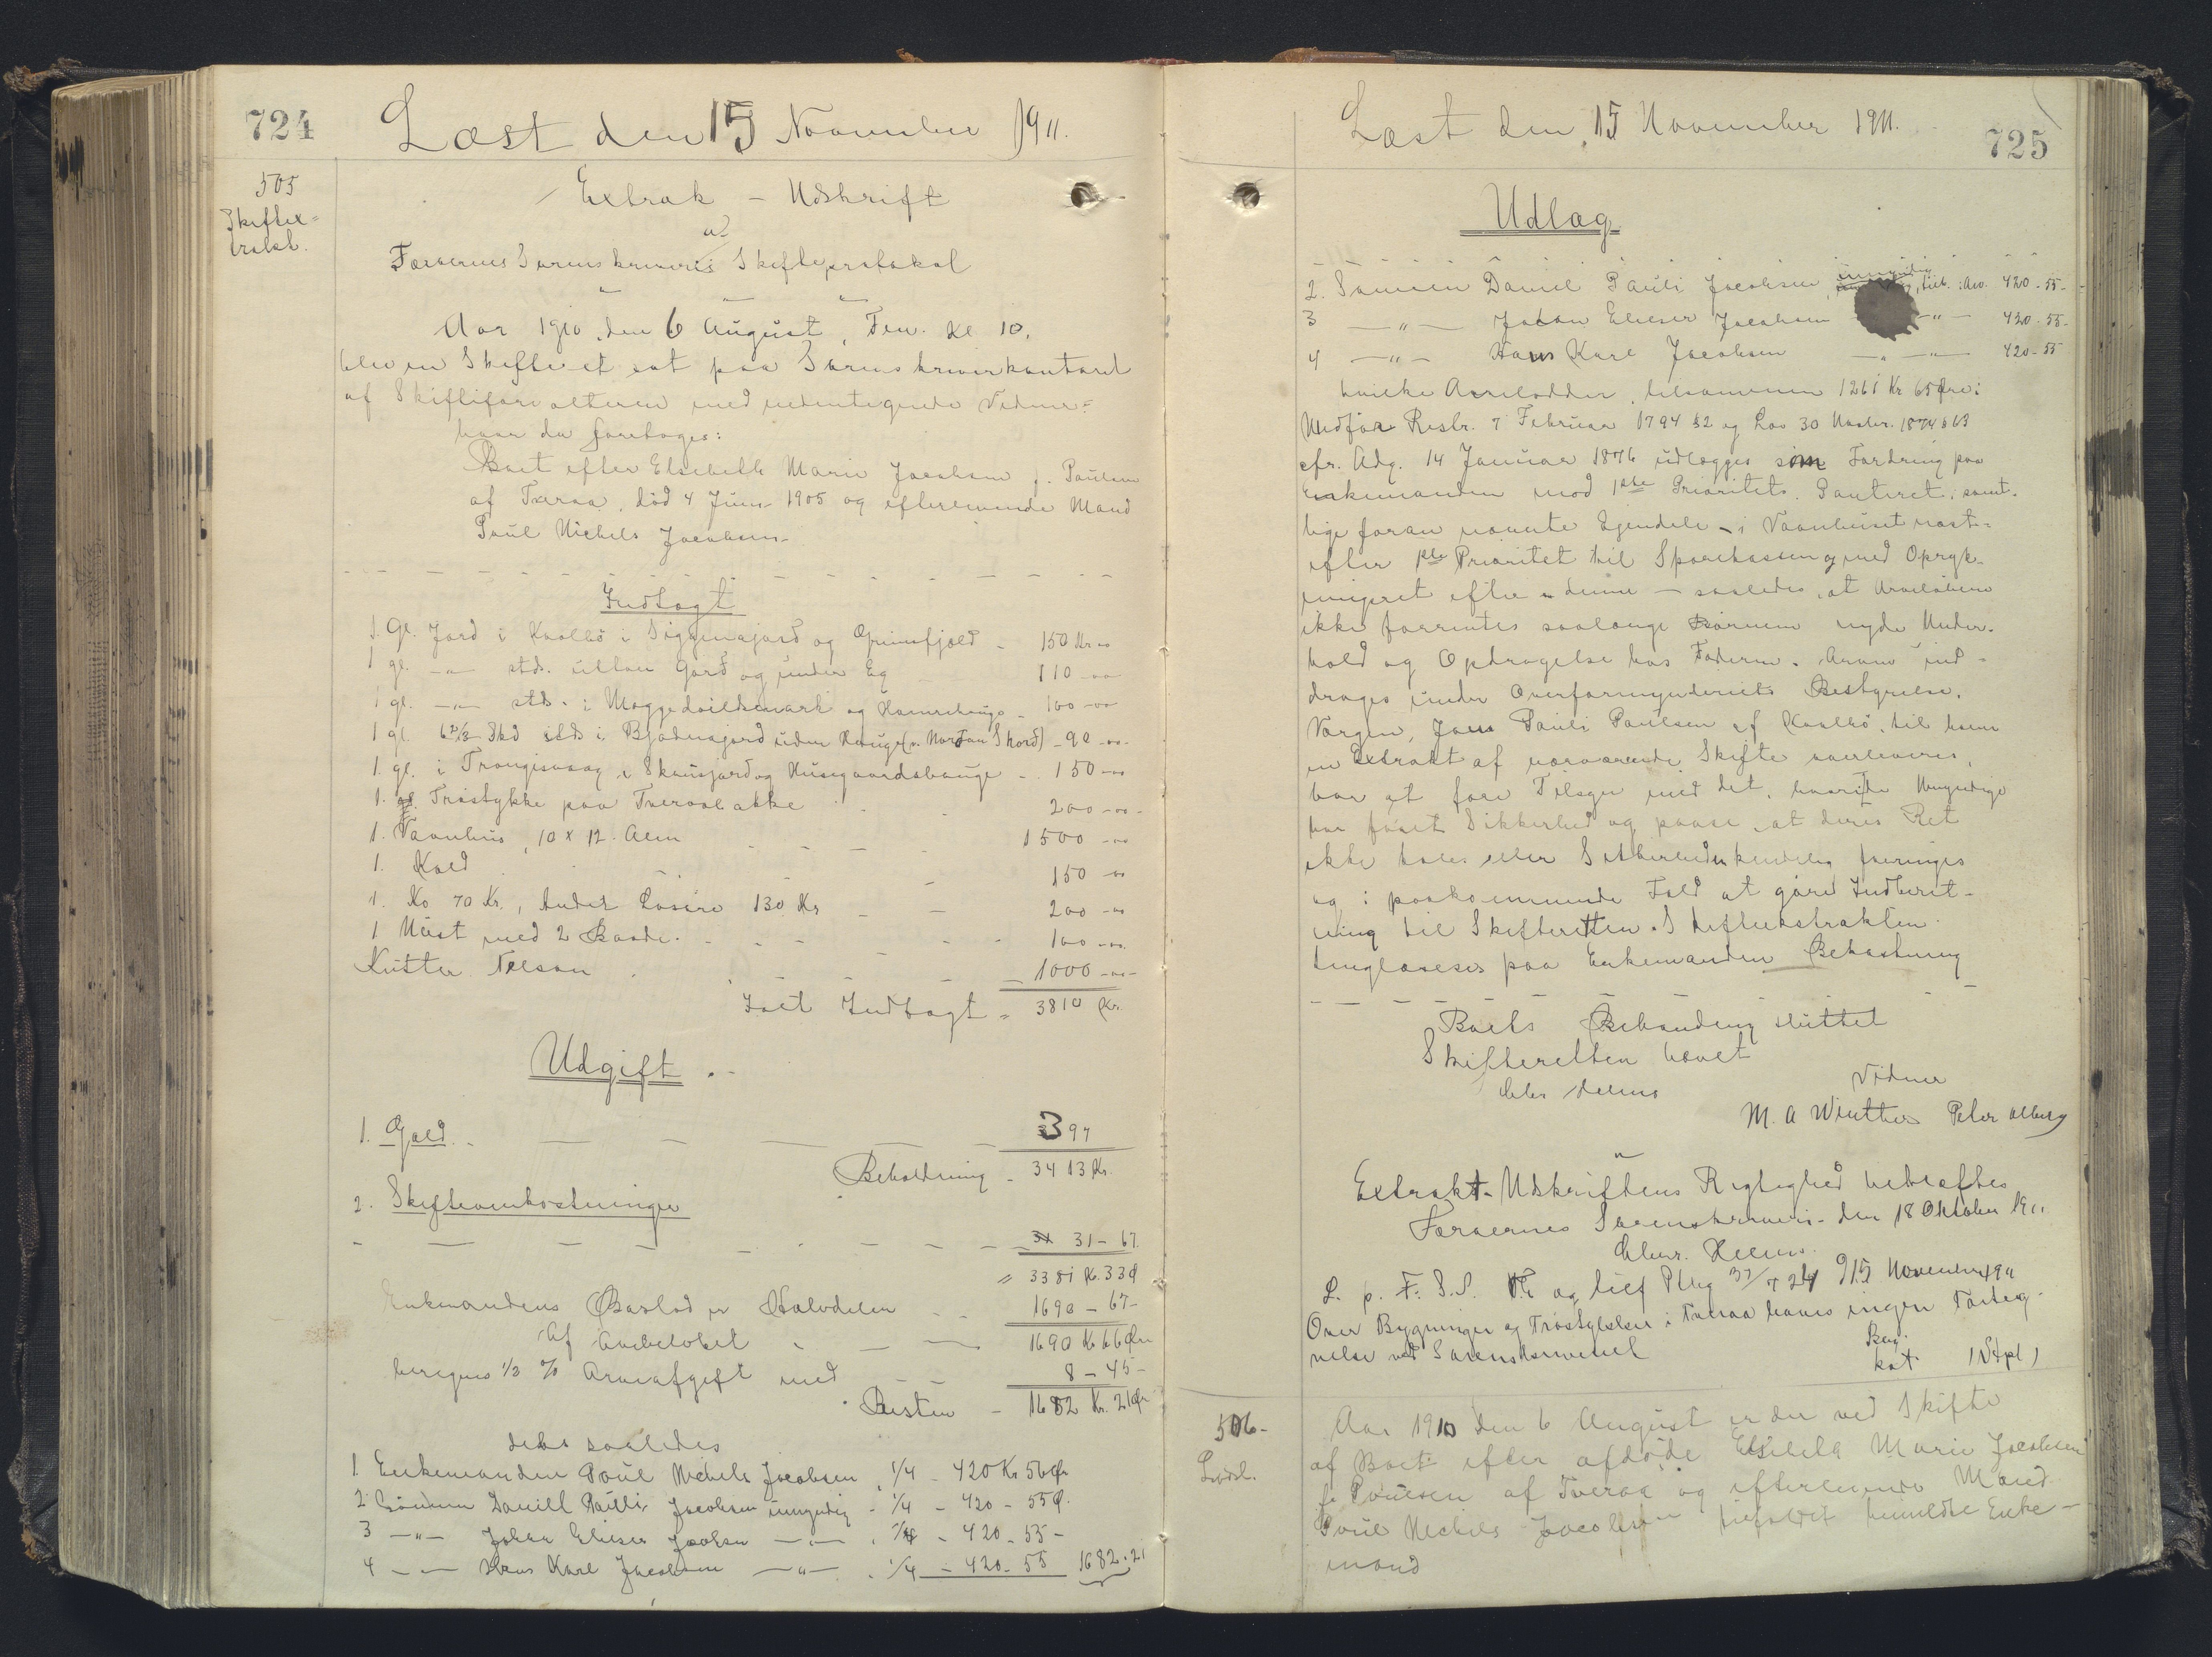 724
Læst den 15 November 1911.
505
Skiftex=
trakt.
Extrak - Udskrift
af
Færøernes Sorenskriveris Skifteprotokol
Aar 1910, den 6 August, Fm. Kl. 10,
blev en Skifteret sat paa Sorenskriverkontoret
af Skifteforvalteren med undertegnede Vidner:
hvor da foretoges:
Boet efter Elsebeth Marie Jacobsen f. Poulsen
af Tveraa, død 4 Juni 1905 og efterlevende Mand
Poul Michels Jacobsen
Indtægt
1 Gl. Jord i Kvalbø i og - 150 Kr oo
1 gl. -"- stds. uttan Gard og under Eg - 110 - oo
1 gl. -"- stds. i og - 100 - oo
1 gl. 6 2/3 Skd stds i uden Hauge (v. Nordan Skord) - 90 - oo -
1. gl. i Trongisvaag, i og - 150 - oo
1. gl. Trøstykke paa Tveraabakke 200 - oo -
1. Vaanhus, 10 x 12 Alen 1500 - oo
1. Kald 150 - oo
1. Ko 70 Kr., Andet Løsøre 130 Kr 200 - oo
1 Nøst med 2 Baade 100 - oo
Kutter Nelson 1000 - oo -
Ialt Indtægt = 3810 Kr.
Udgift.
1. Gæld 397
Beholdning - 3413 Kr.
2. Skifteomkostninger
31 - 67
= 3381 Kr. 33 Ø
Enkemandens Boslod er Halvdelen 1690 - 67 -
Af Arvebeløbet 1690 Kr 66 Øre
beregnes 1/2 % Arveafgift med 8 - 45 -
Resten - 1682 Kr. 21 Ør
deles saaledes
1. Enkemanden Poul Michels Jacobsen, 1/4 - 420 Kr 56 Ør
2 Sønnen Daniel Pauli Jacobsen umyndig - 1/4 - 420 - 55 Ø.
3 -"- Johan Elieser Jacobsen -"- . 1/4 - 420 - 55 -
4 -"- Hans Karl Jacobsen -"- . 1/4 - 420 - 55 1682.21
Læst den 15 November 1911.
725
Udlæg
2. Sønnen Daniel Pauli Jacobsen, umyndig, Arv. 420 - 55 -
3 -"- Johan Elieser Jacobsen -"- 420 - 55 -
4 -"- Hans Karl Jacobsen -"- 420 - 55
hvilke Arvelodder, tilsammen 1261 Kr 65 Øre i
Medfør Reskr. 7 Februar 1794 § 2 og Lov 30 Novbr. 1874 § 13
cfr. Adg. 14 Januar 1876 udlægges som Fordring paa
Enkemanden mod 1ste Prioritets Panteret i samt-
lige foran nævnte Ejendele - i Vaanhuset næst-
efter 1ste Prioritet til Sparekassen og med Opryk-
ningsret efter denne - saaledes, at Arveløbene
ikke forrentes saalænge Børnene nyde Under-
hold og Opdragelse hos Faderen. Arven ind-
drages under Overformynderiets Bestyrelse.
Værgen, Jens Pauli Poulsen af Kvalbø, til hvem
en Extrakt af nærværende Skifte overleveres,
bør at føre Tilsyn med det, hvori de Umyndige
har faaet Sikkerhed og paase, at deres Ret
ikke tabes eller Sikkerheden kendelig foringes
og i paakommende Fald at gøre Indberet-
ning til Skifteretten. Skifteekstrakten
tinglæses paa Enkemandens Bekostning
Boets Behandling sluttet
Skifteretten hævet
Vidner
M. A Winther Peter Alberg
Extrakt-Udskriftens Rigtighed bekræftes
Færøernes Sorenskriveri - den 18 Oktober 1911
L. p. F. S. S. Th og lief Ptbg 37/724 15 November 1911
Over Bygninger og Trøstykker i Tveraa haves ingen Forteg-
nelse ved Sorenskriveriet
kat.
506 -
Aar 1910 den 6 August er der ved Skifte
af Boet efter afdøde Elsebeth Marie Jacobsen
f. Poulsen af Tveraa og efterlevende Mand
Poul Michels Jacobsen tilfaldet benævnte Enke-
mand